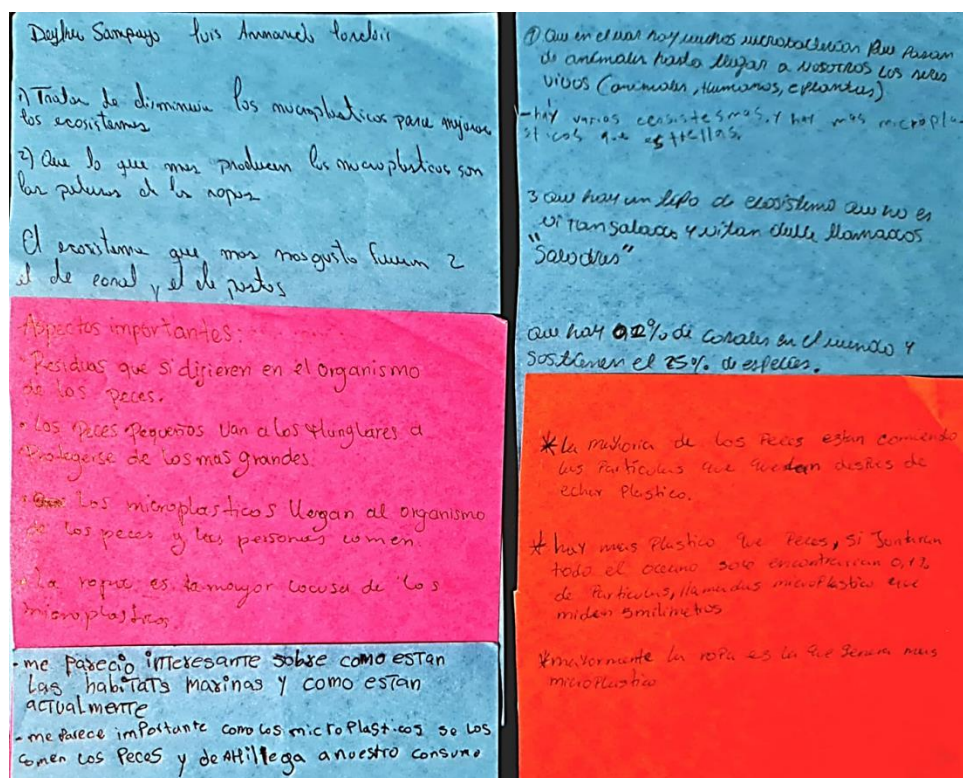 Deyler Sampayo Luis
1) Tratar de disminuir los microplasticos para mejorar
los ecosistemas
2) Que lo que mas producen los microplasticos son
las de la ropa
El ecosistema que mas nos gusto fueron 2
el de coral y el de pastos
Aspectos importantes:
• Residuos que si dijieren en el organismo
de los peces.
• Los peces pequeños van a los Munglares a
Protegerse de los mas grandes.
• Los microplasticos llegan al organismo
de los peces y las personas comen.
• La ropa es la mayor de los
microplasticos.
- me parecio interesante sobre como estan
las habitats marinas y como estan
actualmente
- me parece importante como los microplasticos se los
comen los peces y de AHi llega a nuestro consumo
① Que en el mar hay muchos que pasan
de animales hasta llegar a nosotros los seres
vivos (animales, Humanos, e plantas)
- hay varios y hay mas micropla-
sticos que estrellas.
3 que hay un tipo de ecosistema que no es
ni tan salados y ni tan dulce llamados
"Salodres"
que hay 0.2% de corales en el mundo y
sostienen el 25% de especies.
* la mayoria de los Peces estan comiendo
las Particulas que quedan de
echar Plastico.
* hay mas Plastico que Peces, si Juntiran
todo el oceano solo encontrarian 0,1%
de Particulas, llamadas microPlastico que
miden 5milimetros
* mayormente la ropa es la que genera mas
microPlastico